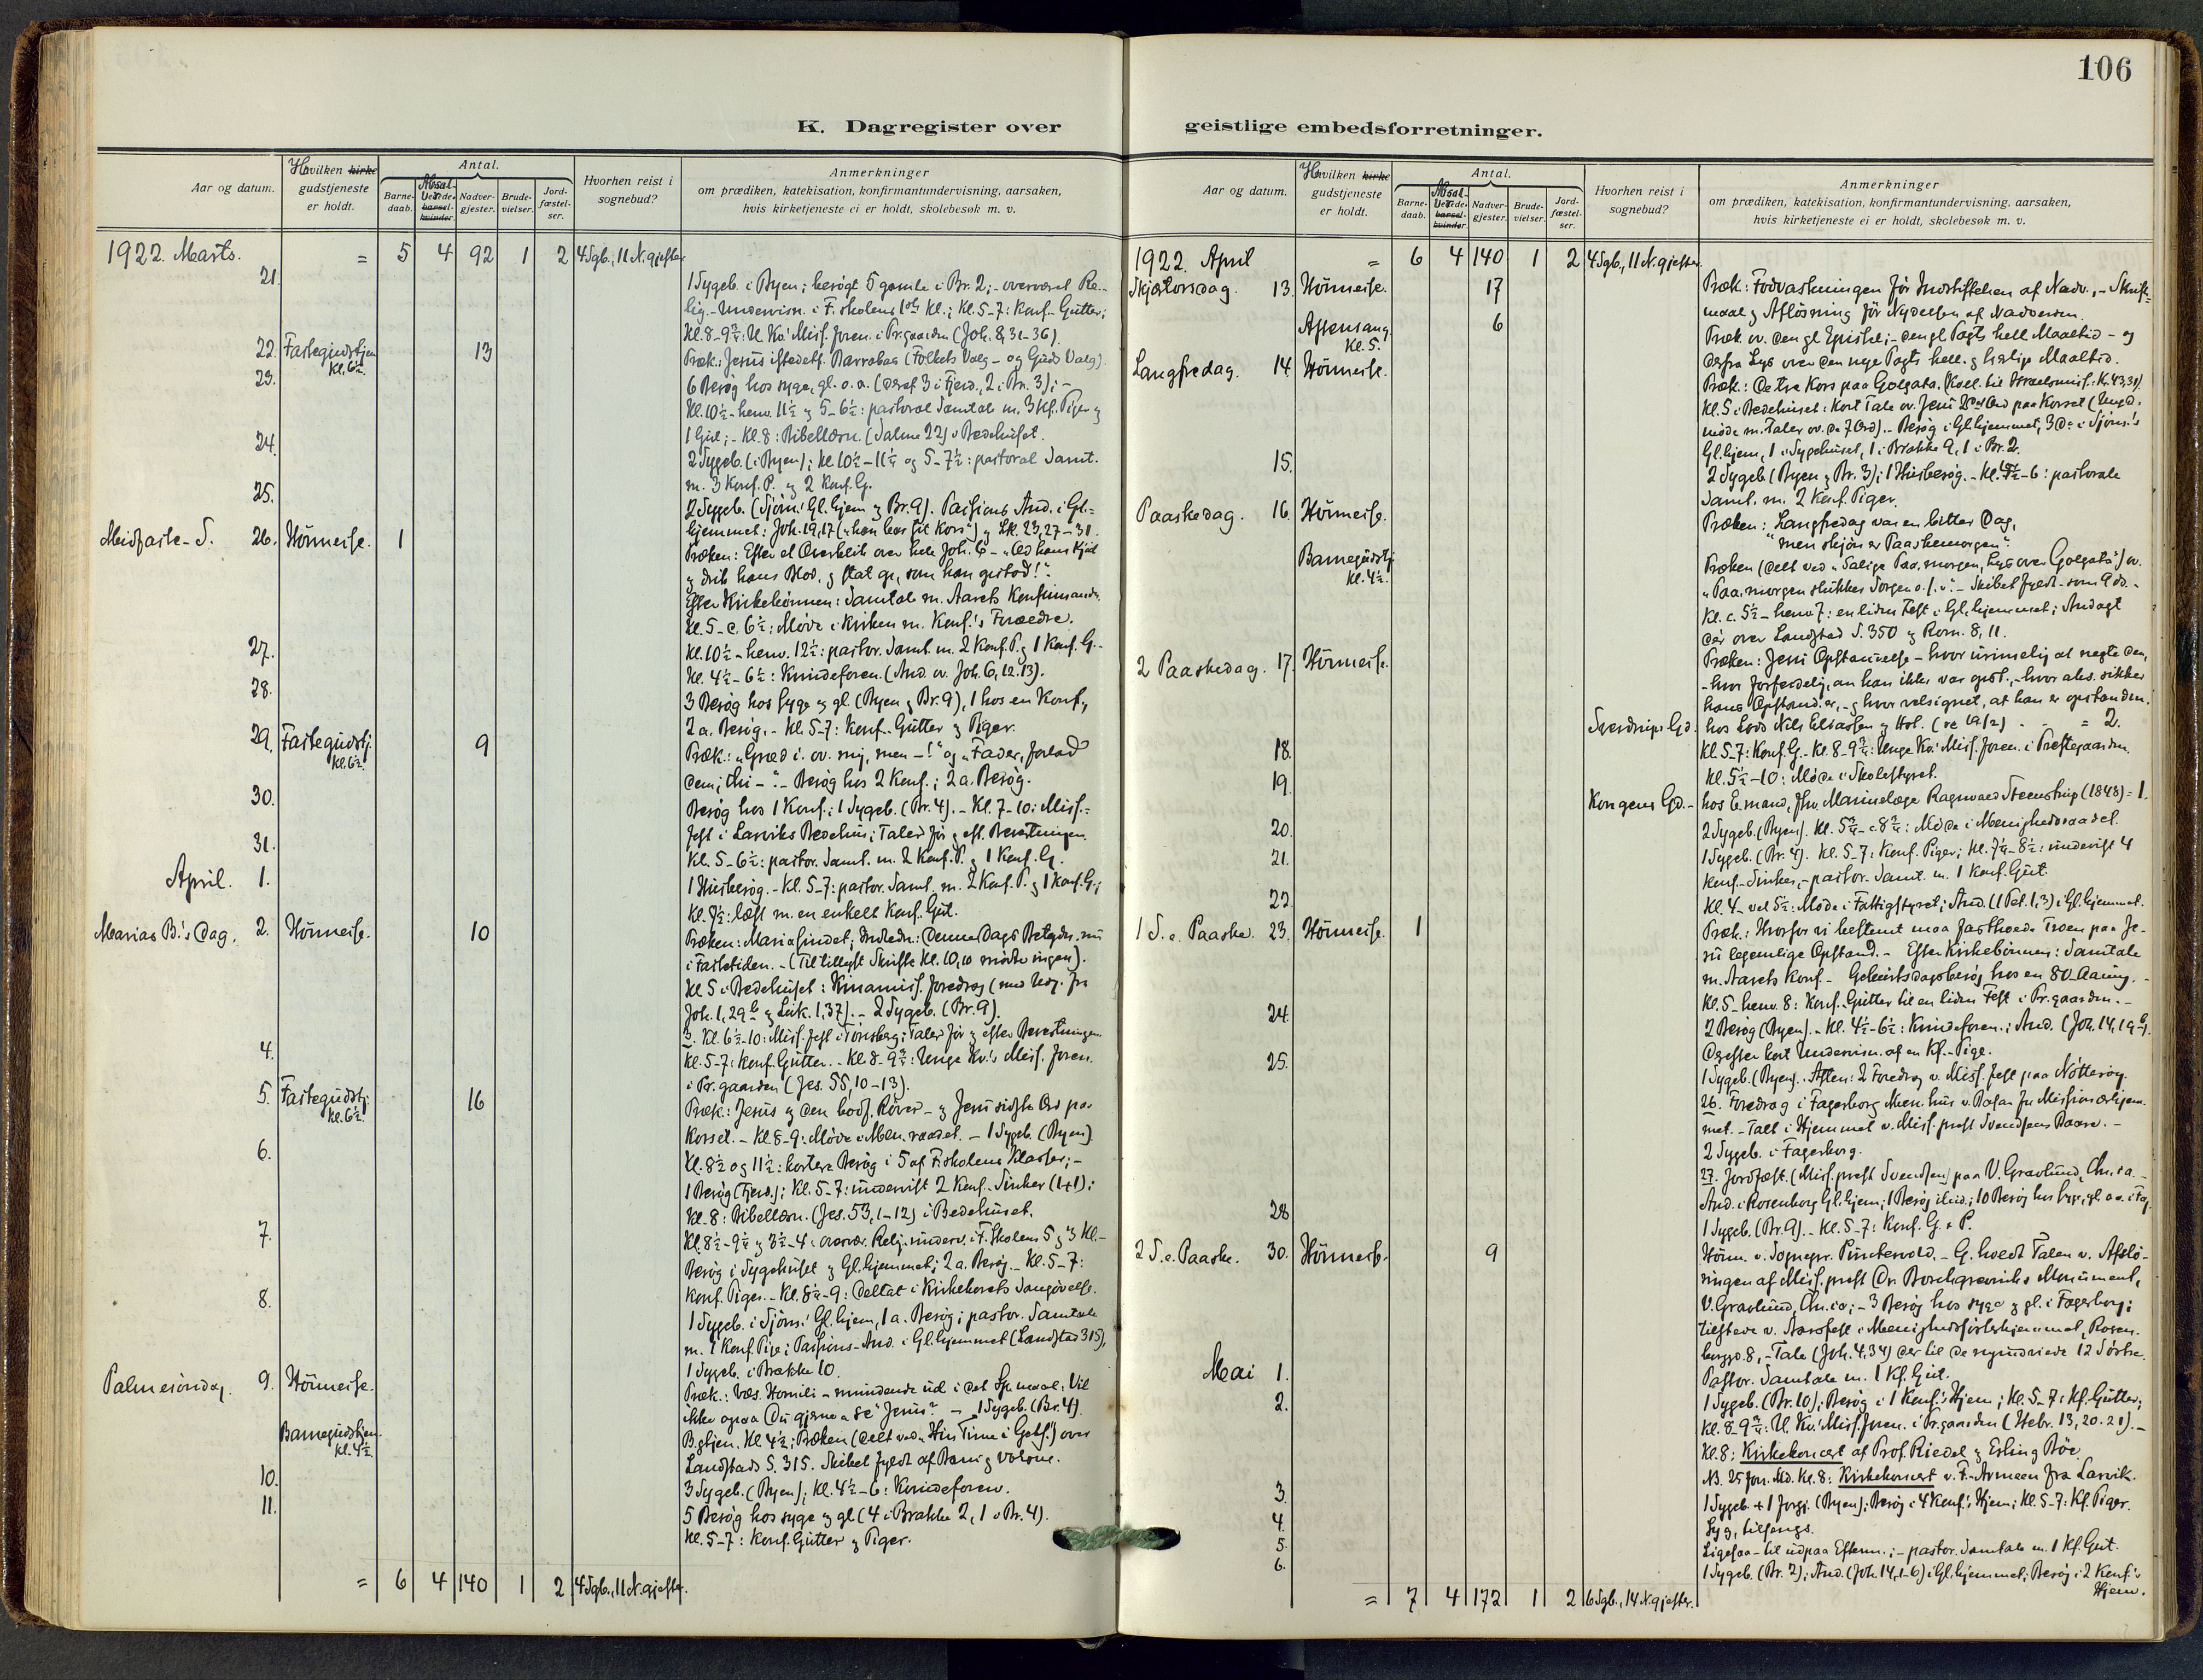 106
K. Dagregister over
geistlige embedsforretninger.
Aar og datum.
Hvilken kirke gudstjeneste er holdt.
Antal.
Barne-daab. Nadver-gjester. Brude-vielser. Jord-fæstel-ser.
Hvorhen reist i sognebud?
Anmerkninger
om prædiken, katekisation, konfirmantundervisning, aarsaken,
hvis kirketjeneste ei er holdt, skolebesøk m. v.
1922. Marts. = 5 4 92 1 2 4 Sgb., 11 N.gjester
21. 1 Sygeb. i Byen; besøgt 5 gamle i Br. 2; - overværet Re-
lig.-Undervisn. i F.skolens Kl.; Kl. 5-7: Konf. Gutter;
Kl. 8-9¾: U. Kv.' Miss. foren. i Pr.gaarden (Joh. 8, 31-36).
22. Fastegudstjen. Kl. 6½. 13 Præk.: Jesus istedetf. Barrabas (Folkets Valg - og Guds Valg).
23. 6 Besøg hos syge, gl. o. a. (deraf 3 i Fjerd., 2 i Br. 3); -
Kl. 10½ - henv. 11½ og 5-6½: pastoral Samtale m. 3 Kf. Piger og
1 Gut; - Kl. 8: Bibellæsn. (Salme 22) i Bedehuset.
24. 2 Sygeb. (i Byen); Kl. 10½-11¼ og 5-7½: pastoral Samt.
m. 3 Konf. P. og 2 Konf. G.
25. 2 Sygeb. (Sjöm.' Gl.hjem og Br. 9). Passions And. i Gl.-
hjemmet: Joh. 19,17 ("han bar sit Kors") og Lk. 23,27-31.
Midfaste-S. 26. Höimesse. 1 Præken: Efter et Overblik over hele Joh. 6 - "Æd hans Kjöd
og drik hans Blod, og stat op, som han opstod!".
Efter Kirkebönnen: Samtale m. Aarets Konfirmander.
Kl. 5-c. 6½: Möde i Kirken m. Konf.'s Forældre.
27. Kl. 10½ - henv. 12½: pastor. Samt. m. 2 Konf. P. og 1 Konf. G. -
Kl. 4½-6½: Kvindeforen. (And. ov. Joh. 6, 12.13).
28. 3 Besøg hos syge og gl. (Byen og Br. 9), 1 hos en Konf.,
2 a. Besøg. - Kl. 5-7: Konf. Gutter og Piger.
29. Fastegudstj. Kl. 6½. 9 Præk.: "Græd i. ov. mig, men -!" og "Fader, forlad
dem; thi -". - Besøg hos 2 Konf.; 2 a. Besøg.
30. Besøg hos 1 Konf.; 1 Sygeb. (Br. 4). - Kl. 7-10: Miss.-
fest i Larviks Bedehus; Taler før og eft. Bevertningen.
31. Kl. 5-6½: pastor. Samt. m. 2 Konf. P. og 1 Konf. G.
April. 1. 1 Husbesøg. - Kl. 5-7: pastor. Samt. m. 2 Konf. P. og 1 Konf. G.;
Kl. 7½: læst m. en enkelt Konf. Gut.
Marias B.'s Dag. 2. Höimesse. 10 Præken: Mariasindet; Indledn.: Denne Dags Betydn. nu
i Fastetiden. - (Til tillyst Skrifte Kl. 10,10 mödte ingen).
Kl. 5 i Bedehuset: Kinamiss. foredrag (med Udg. fra
Joh. 1, 29b og Luk. 1,37). - 2 Sygeb. (Br. 9).
3. Kl. 6½-10: Miss. fest i Tönsberg; Taler før og efter Bevertningen.
4. Kl. 5-7: Konf. Gutter. - Kl. 8-9¾: Unge Kv.'s Miss. foren.
i Pr.gaarden (Jes. 55, 10-13).
5. Fastegudstj. Kl. 6½. 16 Præk.: Jesus og den bodf. Röver - og Jesu sidste Ord paa
Korset. - Kl. 8-9: Möde i Men.raadet. - 1 Sygeb. (Byen).
6. Kl. 8½ og 11½: kortere Besøg i 5 af F.skolens Klasser; -
1 Besøg (Fjerd.); Kl. 5-7: undervist 2 Konf.-Sinker (1+1);
Kl. 8: Bibellæsn. (Jes. 53, 1-12) i Bedehuset.
7. Kl. 8½-9¼ og 3½-4: overvær. Relig.underv. i F.Skolens 5 og 3 Kl. -
Besøg i Sygehuset og Gl.hjemmet; 2 a. Besøg. - Kl. 5-7:
Konf. Piger. - Kl. 8¼-9: Deltat i Kirkekorets Sangövelse.
8. 1 Sygeb. i Sjöm.' Gl.hjem, 1 a. Besøg; pastor. Samtale
m. 1 Konf. Pige; Passions-And. i Gl.hjemmet (Landstad 315),
1 Sygeb. i Brakke 10.
Palmesöndag. 9. Höimesse. Præk.: Væs. Homili - mundende ud i det Spmaal: Vil
ikke ogsaa Du gjerne "se" Jesus? - 1 Sygeb. (Br. 4).
Barnegudstjen. Kl. 4½ B.gtjen. Kl. 4½; Præken (delt ved "Hin Time i Gets.") over
Landstads S. 315. Skibet fyldt af Börn og Voksne.
10. 3 Sygeb. (Byen); Kl. 4½-6: Kvindeforen.
11. 5 Besøg hos syge og gl. (4 i Brakke 2, 1 i Br. 4).
Kl. 5-7: Konf. Gutter og Piger.
= 6 4 140 1 2 4 Sgb., 11 N.gjester.
Aar og datum.
Hvilken kirke gudstjeneste er holdt.
Antal.
Barne-daab. Nadver-gjester. Brude-vielser. Jord-fæstel-ser.
Hvorhen reist i sognebud?
Anmerkninger
om prædiken, katekisation, konfirmantundervisning, aarsaken,
hvis kirketjeneste ei er holdt, skolebesøk m. v.
1922. April = 6 4 140 1 2 4 Sgb., 11 N.gjester.
Skjærtorsdag. 13. Höimesse. 17 Præk.: Fodvaskningen før Indstiftelsen af Nadv., - Skrifte-
maal og Aflösning før Nydelsen af Nadveren.
Aftensang Kl. 5. 6 Præk. ov. den gl. Epistel; - den gl. Pagts hell. Maaltid - og
derfra Lys over den nye Pagts hell. og herlige Maaltid.
Langfredag. 14. Höimesse. Præk.: De tre Kors paa Golgata. (Koll. til Israelsmis.: Kr. 43,31).
Kl. 5 i Bedehuset: Kort Tale ov. Jesu Ord paa Korset (Ungd.
möde m. Taler ov. de 7 Ord). - Besøg i Gl.hjemmet, 3 Do i Sjöm.'s
Gl.hjem, 1 i Sygehuset, 1 i Brakke 9, 1 i Br. 2.
15. 2 Sygeb. (Byen og Br. 3); 1 Husbesøg. - Kl. -6: pastorale
Samt. m. 2 Konf. Piger.
Paaskedag. 16. Höimesse. Præken: "Langfredag var en bitter Dag,
men skjön er Paaskemorgen".
Barnegudstj. Kl. 4½. Præken (delt ved "Salige Paa.morgen, Lys over Golgata") ov.
"Paa.morgen slukker Sorgen o.s.v." - Skibet fyldt som 9 ds. -
Kl. c. 5½ - henv. 7: en liden Fest i Gl.hjemmet; Andagt
dér over Landstad S. 350 og Rom. 8, 11.
2 Paaskedag. 17. Höimesse. Præken: Jesu Opstandelse - hvor urimelig at negte den,
- hvor forferdelig, om han ikke var opst., - hvor abs. sikker
hans Opstand. er, - og hvor velsignet, at han er opstanden.
Sverdrups Gd. hos Lods Nils Eliassen og Hst. - - = 2.
18. Kl. 5-7: Konf. G. - Kl. 8-9¾: Unge Kv.' Miss. foren. i Prestegaarden.
19. Kl. 5½-10: Möde i Skolestyret.
Kongens Gd. - hos E.mand, fhv. Marinelæge Ragnvald Steenstrup (1848) = 1.
20. 2 Sygeb. (Byen). Kl. 5¾-c. 8¾: Möde i Menighedsraadet.
21. 1 Sygeb. (Br. 4). Kl. 5-7: Konf. Piger; Kl. 7¼-8½: undervist 4
Konf.-Sinker; - pastor. Samt. m. 1 Konf. Gut.
22. Kl. 4 - vel 5½: Möde i Fattigstyret; And. (1 Pet. 1,3) i Gl.hjemmet.
1 S. e. Paaske. 23. Höimesse. 1 Præk.: Hvorfor vi bestemt maa fastholde Troen paa Je-
su legemlige Opstand. - Efter Kirkebönnen: Samtale
m. Aarets Konf. - Geburtsdagsbesøg hos en 80-Aaring. -
Kl. 5 - henv. 8: Konf. Gutter til en liden Fest i Pr.gaarden. -
24. 2 Besøg (Byen). - Kl. 4½-6½: Kvindeforen.; And. (Joh. 14, 19b).
Derefter kort Undervisn. af en Kf.-Pige.
25. 1 Sygeb. (Byen). Aften: 2 Foredrag v. Miss. fest paa Nötteröy.
26. Foredrag i Fagerborg Men.hus v. Basar for Missionærhjem-
met. - Talt i Hjemmet v. Miss. prest Svendsens Baare. -
2 Sygeb. i Fagerborg.
27. Jordfæst. (Miss. prest Svendsen) paa V. Gravlund, Chr.ia. -
And. i Rosenborg Gl.hjem; 1 Besøg ; 10 Besøg hos syge, gl. o.a. i Fag.
28. 1 Sygeb. (Br. 9). - Kl. 5-7: Konf. G. + P.
2 S. e. Paaske. 30. Höimesse. 9 Höim. v. Sognepr. Pintervold. - G. holdt Talen v. Afslö-
ringen af Miss. prest Dr. Borchgrevinks Monument,
V. Gravlund, Chr.ia; - 3 Besøg hos syge og gl. i Fagerborg;
tilstede v. Aarsfest i Menighedssösterhjemmet, Rosen-
borggd. 8, - Tale (Joh. 4, 34) der til de nyindviede 12 Söstre.
Mai 1. Pastor. Samtale m. 1 Kf. Gut.
2. 1 Sygeb. (Br. 10); Besøg i 1 Konf.'s Hjem; Kl. 5-7: Kf. Gutter;
Kl. 8-9¾: U. Kv.' Miss. foren. i Pr.gaarden (Hebr. 13, 20.21). -
Kl. 8: Kirkekoncert af Prof. Riedel og Erling Böe.
NB. 25 forr. Md. Kl. 8: Kirkekoncert v. F.-Armeen fra Larvik.
3. 1 Sygeb. + 1 (Byen); Besøg i 4 Konf.' Hjem; Kl. 5-7: Kf. Piger.
4. Syg, tilsengs.
5. Ligesaa - til udpaa Efterm.; - pastor. Samtale m. 1 Kf. Gut.
6. 1 Sygeb. (Br. 2); And. (Joh. 14, 1-6) i Gl.hjemmet; Besøg i 2 Konf.'s
Hjem.
= 7 4 172 1 2 6 Sgb., 14 N.gjester.